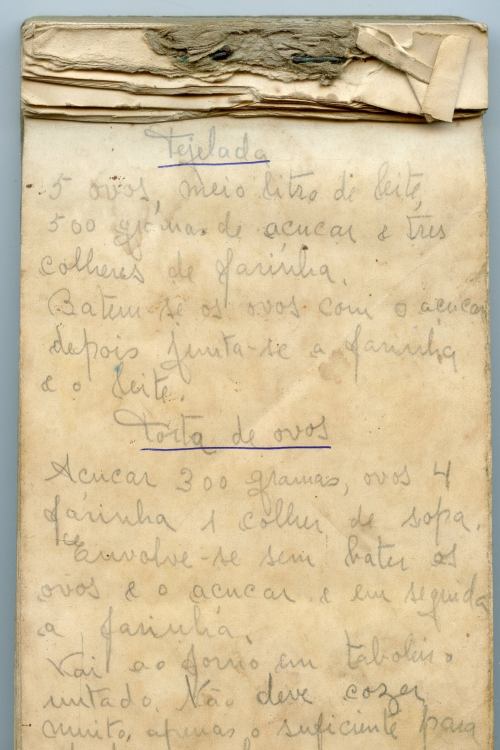 Tejelada
5 ovos, meio litro de leite,
500 gramas de acucar e tres
colheres de farinha.
Batem-se os ovos com o acucar
depois junta-se a farinha
e o leite.
Torta de ovos
Acucar 300 gramas, ovos 4
farinha 1 colher de sopa.
Envolve-se sem bater os
ovos e o acucar e em seguida
a farinha.
Vai ao forno em taboleiro
untado. Não deve cozer
muito, apenas o suficiente para